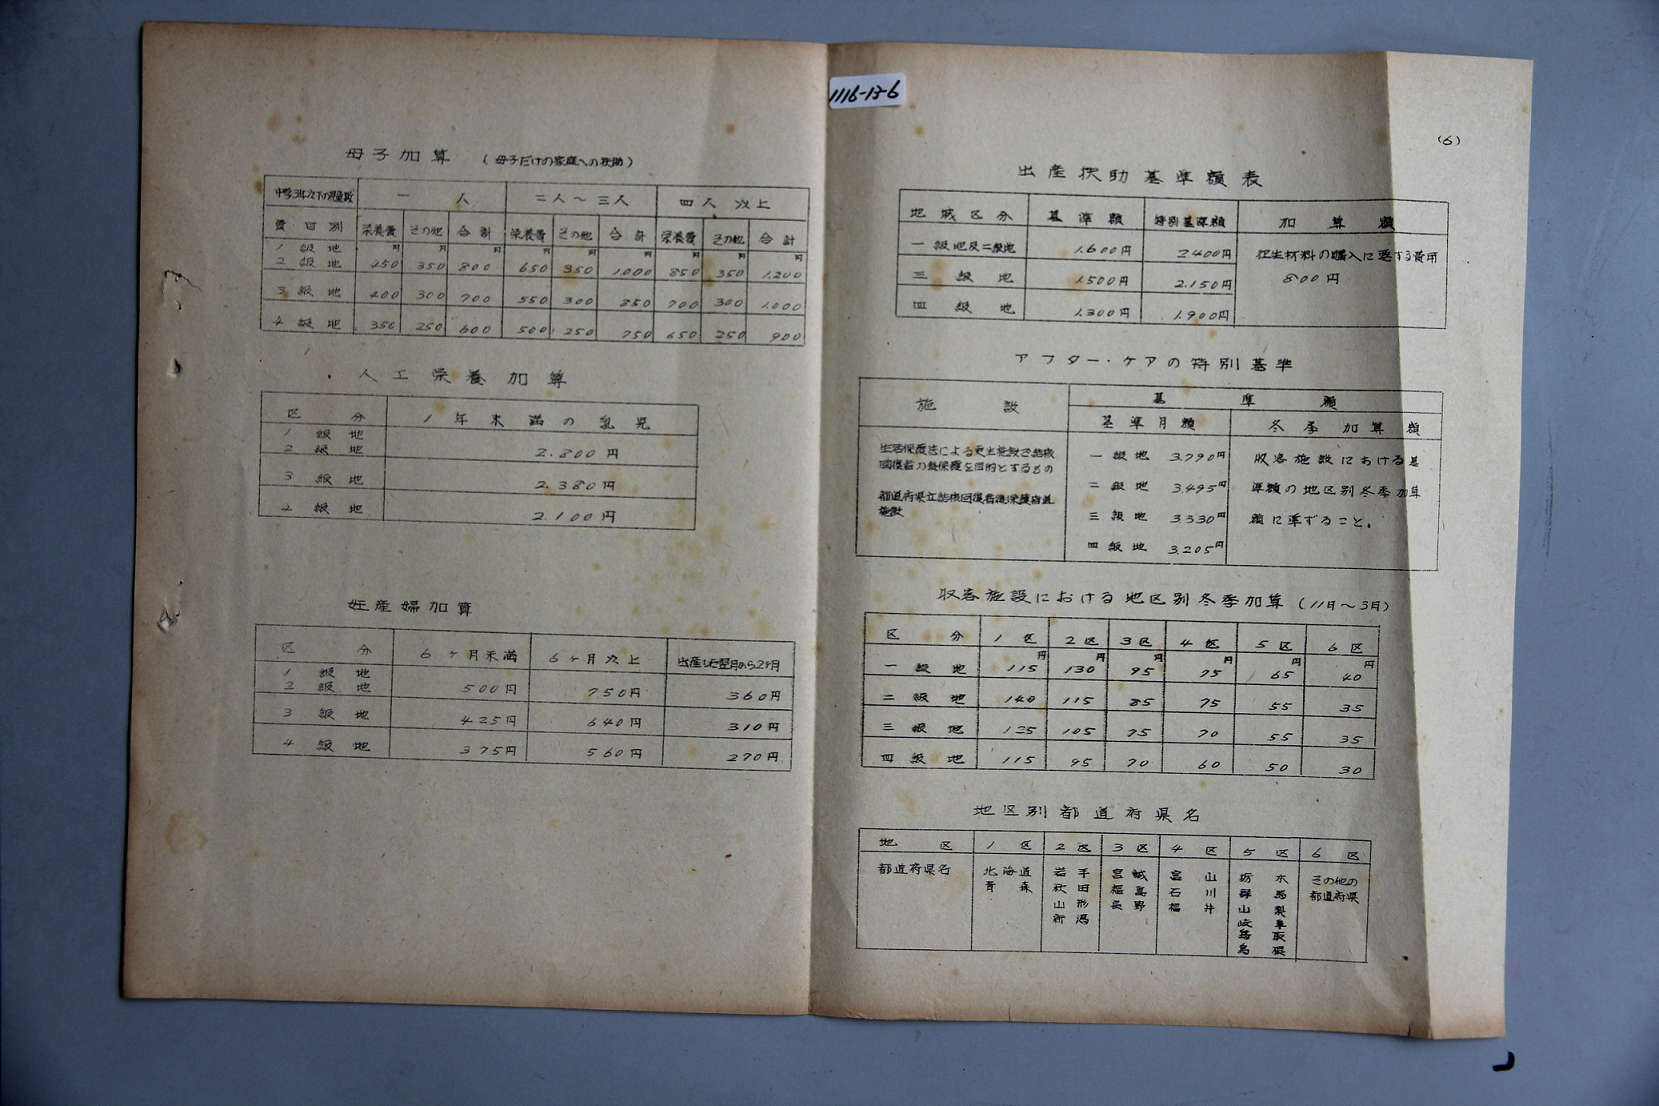 1116-13-6
母子加算 (母子だけの家庭への扶助)
一人 二人～三人 四人以上
費目別 栄養費 その他 合計 栄養費 その他 合計 栄養費 その他 合計
1級地 円 円 円 円 円 円 円 円 円
2級地 450 350 800 650 350 1,000 850 350 1,200
3級地 400 300 700 550 300 850 700 300 1,000
4級地 350 250 600 500 250 750 650 250 900
人工栄養加算
区分 1年未満の乳児
1級地
2級地 2.800円
3級地 2.380円
4級地 2.100円
妊産婦加算
区分 6ヶ月未満 6ヶ月以上 出産した翌月から2ヶ月
1級地
2級地 500円 750円 360円
3級地 425円 640円 310円
4級地 375円 560円 270円
(6)
出産扶助基準額表
地域区分 基準額 特別基準額 加算額
一級地及二級地 1.600円 2400円 衛生材料の購入に要する費用
800円
三級地 1.500円 2.150円
四級地 1.300円 1.900円
アフター・ケアの特別基準
施設 基準額
基準月額 冬季加算額
生活保護法による更生施設で結核
回復者の後保護を目的とするもの
都道府県立結核回復者後保護
施設
一級地 3.790円
二級地 3.495円
三級地 3330円
四級地 3.205円
収容施設における基
準額の地区別冬季加算
額に準ずること。
収容施設における地区別冬季加算 (11月～3月)
区分 1区 2区 3区 4区 5区 6区
一級地 115円 130円 95円 95円 65円 40円
二級地 140 115 85 75 55 35
三級地 125 105 75 70 55 35
四級地 115 95 70 60 50 30
地区別都道府県名
地区 1区 2区 3区 4区 5区 6区
都道府県名
北海道
青森
岩手
秋田
山形
新潟
宮城
福島
長野
富山
石川
福井
栃木
群馬
山梨
岐阜
鳥取
島根
その他の
都道府県